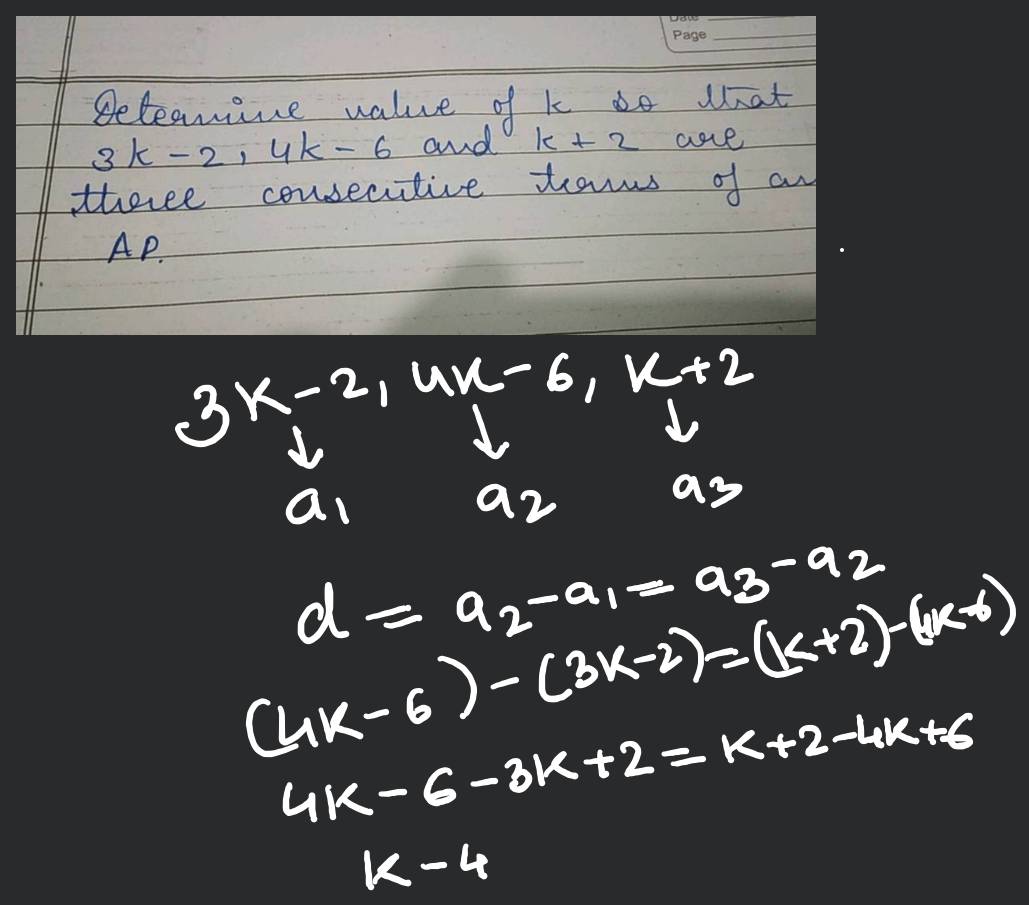 Date
Page
Determine value of k so that
3k-2, 4k-6 and k+2 are
three consecutive terms of an
AP.
3K-2, 4K-6, K+2
↓ ↓ ↓
a1 a2 a3
d = a2-a1 = a3-a2
(4K-6)-(3K-2)=(K+2)-(4K-6)
4K-6-3K+2=K+2-4K+6
K-4